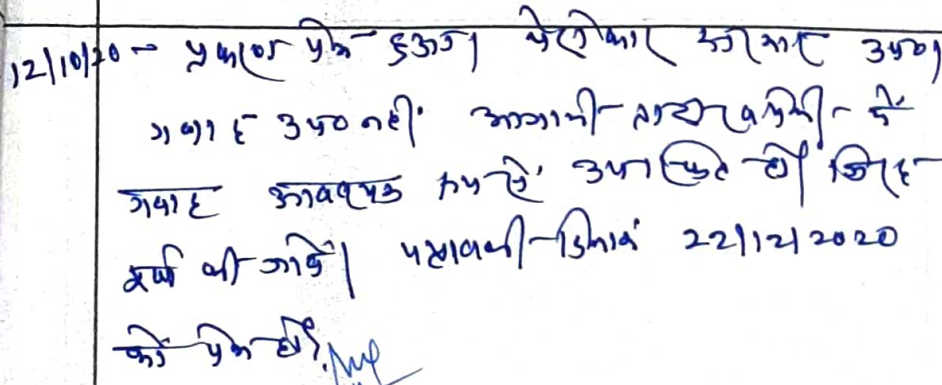 12/10/20 - प्रकरण पेश हुआ। पैरोकार सरकार उप०।
गवाह उप० नहीं। आगामी तारीख पेशी में
गवाह आवश्यक रूप से उपस्थित हो। जिरह
पूर्ण की जावे। पत्रावली दिनांक 22/12/2020
को पेश हो।